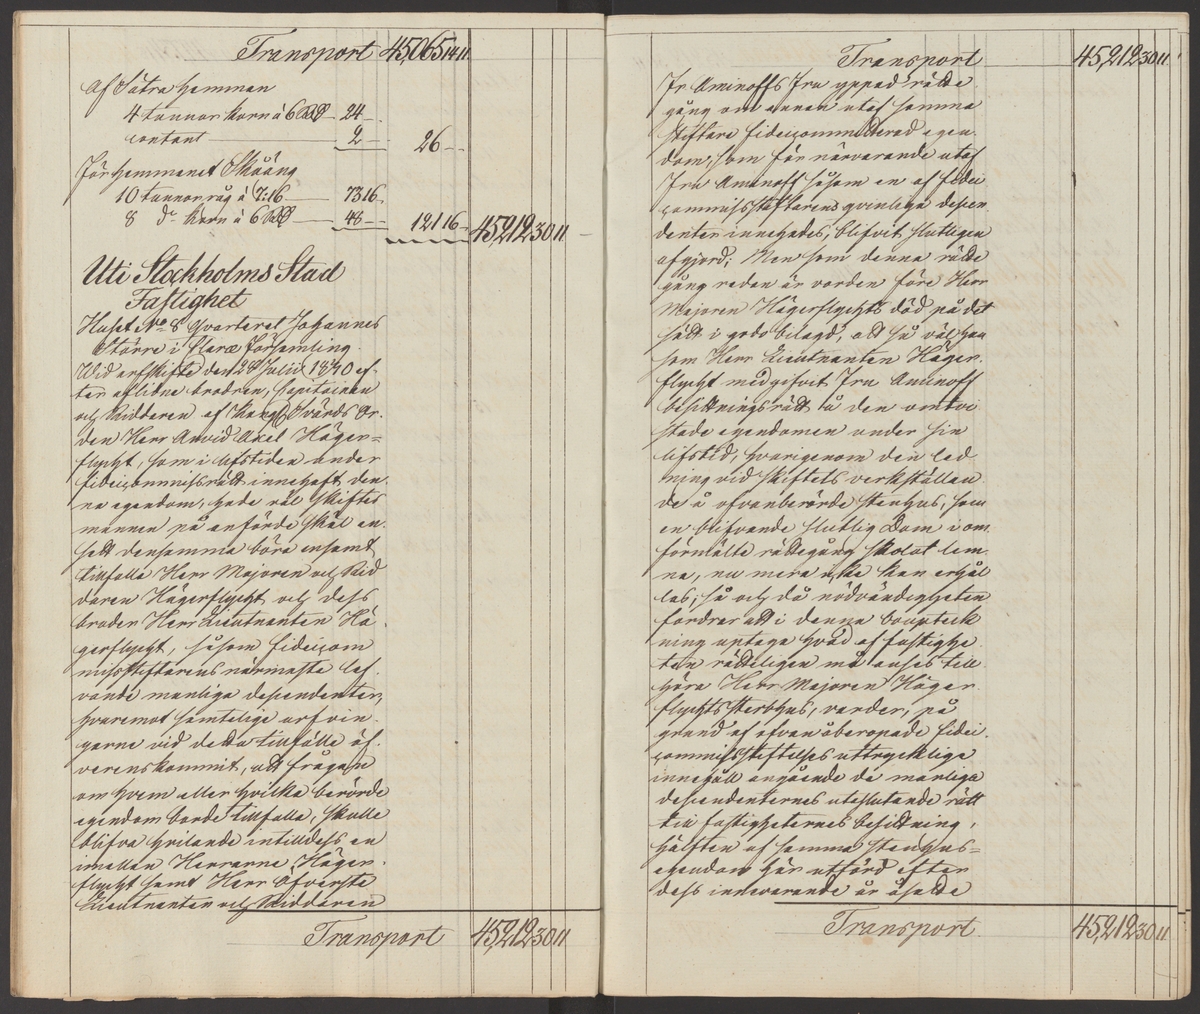 Transport 45,065 14 11
Af Sätra Hemman
4 tunnor korn à 6 Rdr 24 —
contant 2 — 26 —
För hemmanet Skoäng
10 tunnor råg à 7:16 73 16
8 do korn à 6 Rdr 48 — 121 16 45,212 30 11
Uti Stockholms Stad
Fastighet
Huset No 8 Qvarteret Johannes
Större i Claræ Församling.
Wid arfskifte den 28 Julii 1840 ef-
ter aflidne brodren, Capitainen
och Ridderen af Kongl. Svärds Or-
den Herr Arvid Axel Häger-
flycht, som i lifstiden under
fideicommissrätt innehaft den-
na egendom, hade väl skiftes
mannen på anförde skäl en-
sett densamma böra ensamt
tillfalla Herr Majoren och Rid
daren Hägerflycht och dess
broder Herr Lieutnanten Hä-
gerflycht, såsom fideicom
missstiftarens närmaste lef-
vande manliga descendenter,
hvaremot samtelige arfvin-
garne vid detta tillfälle öf-
verenskommit, att frågan
om hvem eller hvilka berörde
egendom borde tillfalla, skulle
blifva hvilande intilldess en
imellan Herrarne Häger-
flycht samt Herr Öfverste
Lieutnanten och Ridderen
Transport 45,212 30 11
Transport 45,212 30 11
Fr Aminoffs Fru yppad rätte
gång om annan utaf samma
stiftare fideicommitterad egen
dom, som för närvarande utaf
Fru Aminoff såsom en af fidei
commissstiftarens qvinliga descen
denter innehades, blifvit slutligen
afgjord; Men som denna rätte
gång redan är vorden före Herr
Majoren Hägerflychts död på det
sätt i godo bilagd, att så väl han
som Herr Lieutnanten Häger-
flycht medgifvit Fru Aminoff
besittningsrätt til den omtvi
stade egendomen under sin
lifstid, hvarigenom den led-
ning vid skiftets verkställan
de å ofvanberörde stenhus, som
en blifvande slutlig Dom i om
förmälte rättegång skolat lem-
na, nu mera icke kan erhål
las; så och då nödvändigheten
fordrar att i denna bouptek
ning uptaga hvad af fastighe
ten rätteligen må anses till
höra Herr Majoren Häger-
flychts Sterbhus, varder, på
grund af ofvan åberopade fidei-
commissstiftelses uttryckliga
innehåll angående de manliga
descendenternes uteslutande rätt
till fastigheternes besittning,
hälften af samma stenhus-
egendom här utförd efter
dess innevarande år åsatte
Transport 45,212 30 11